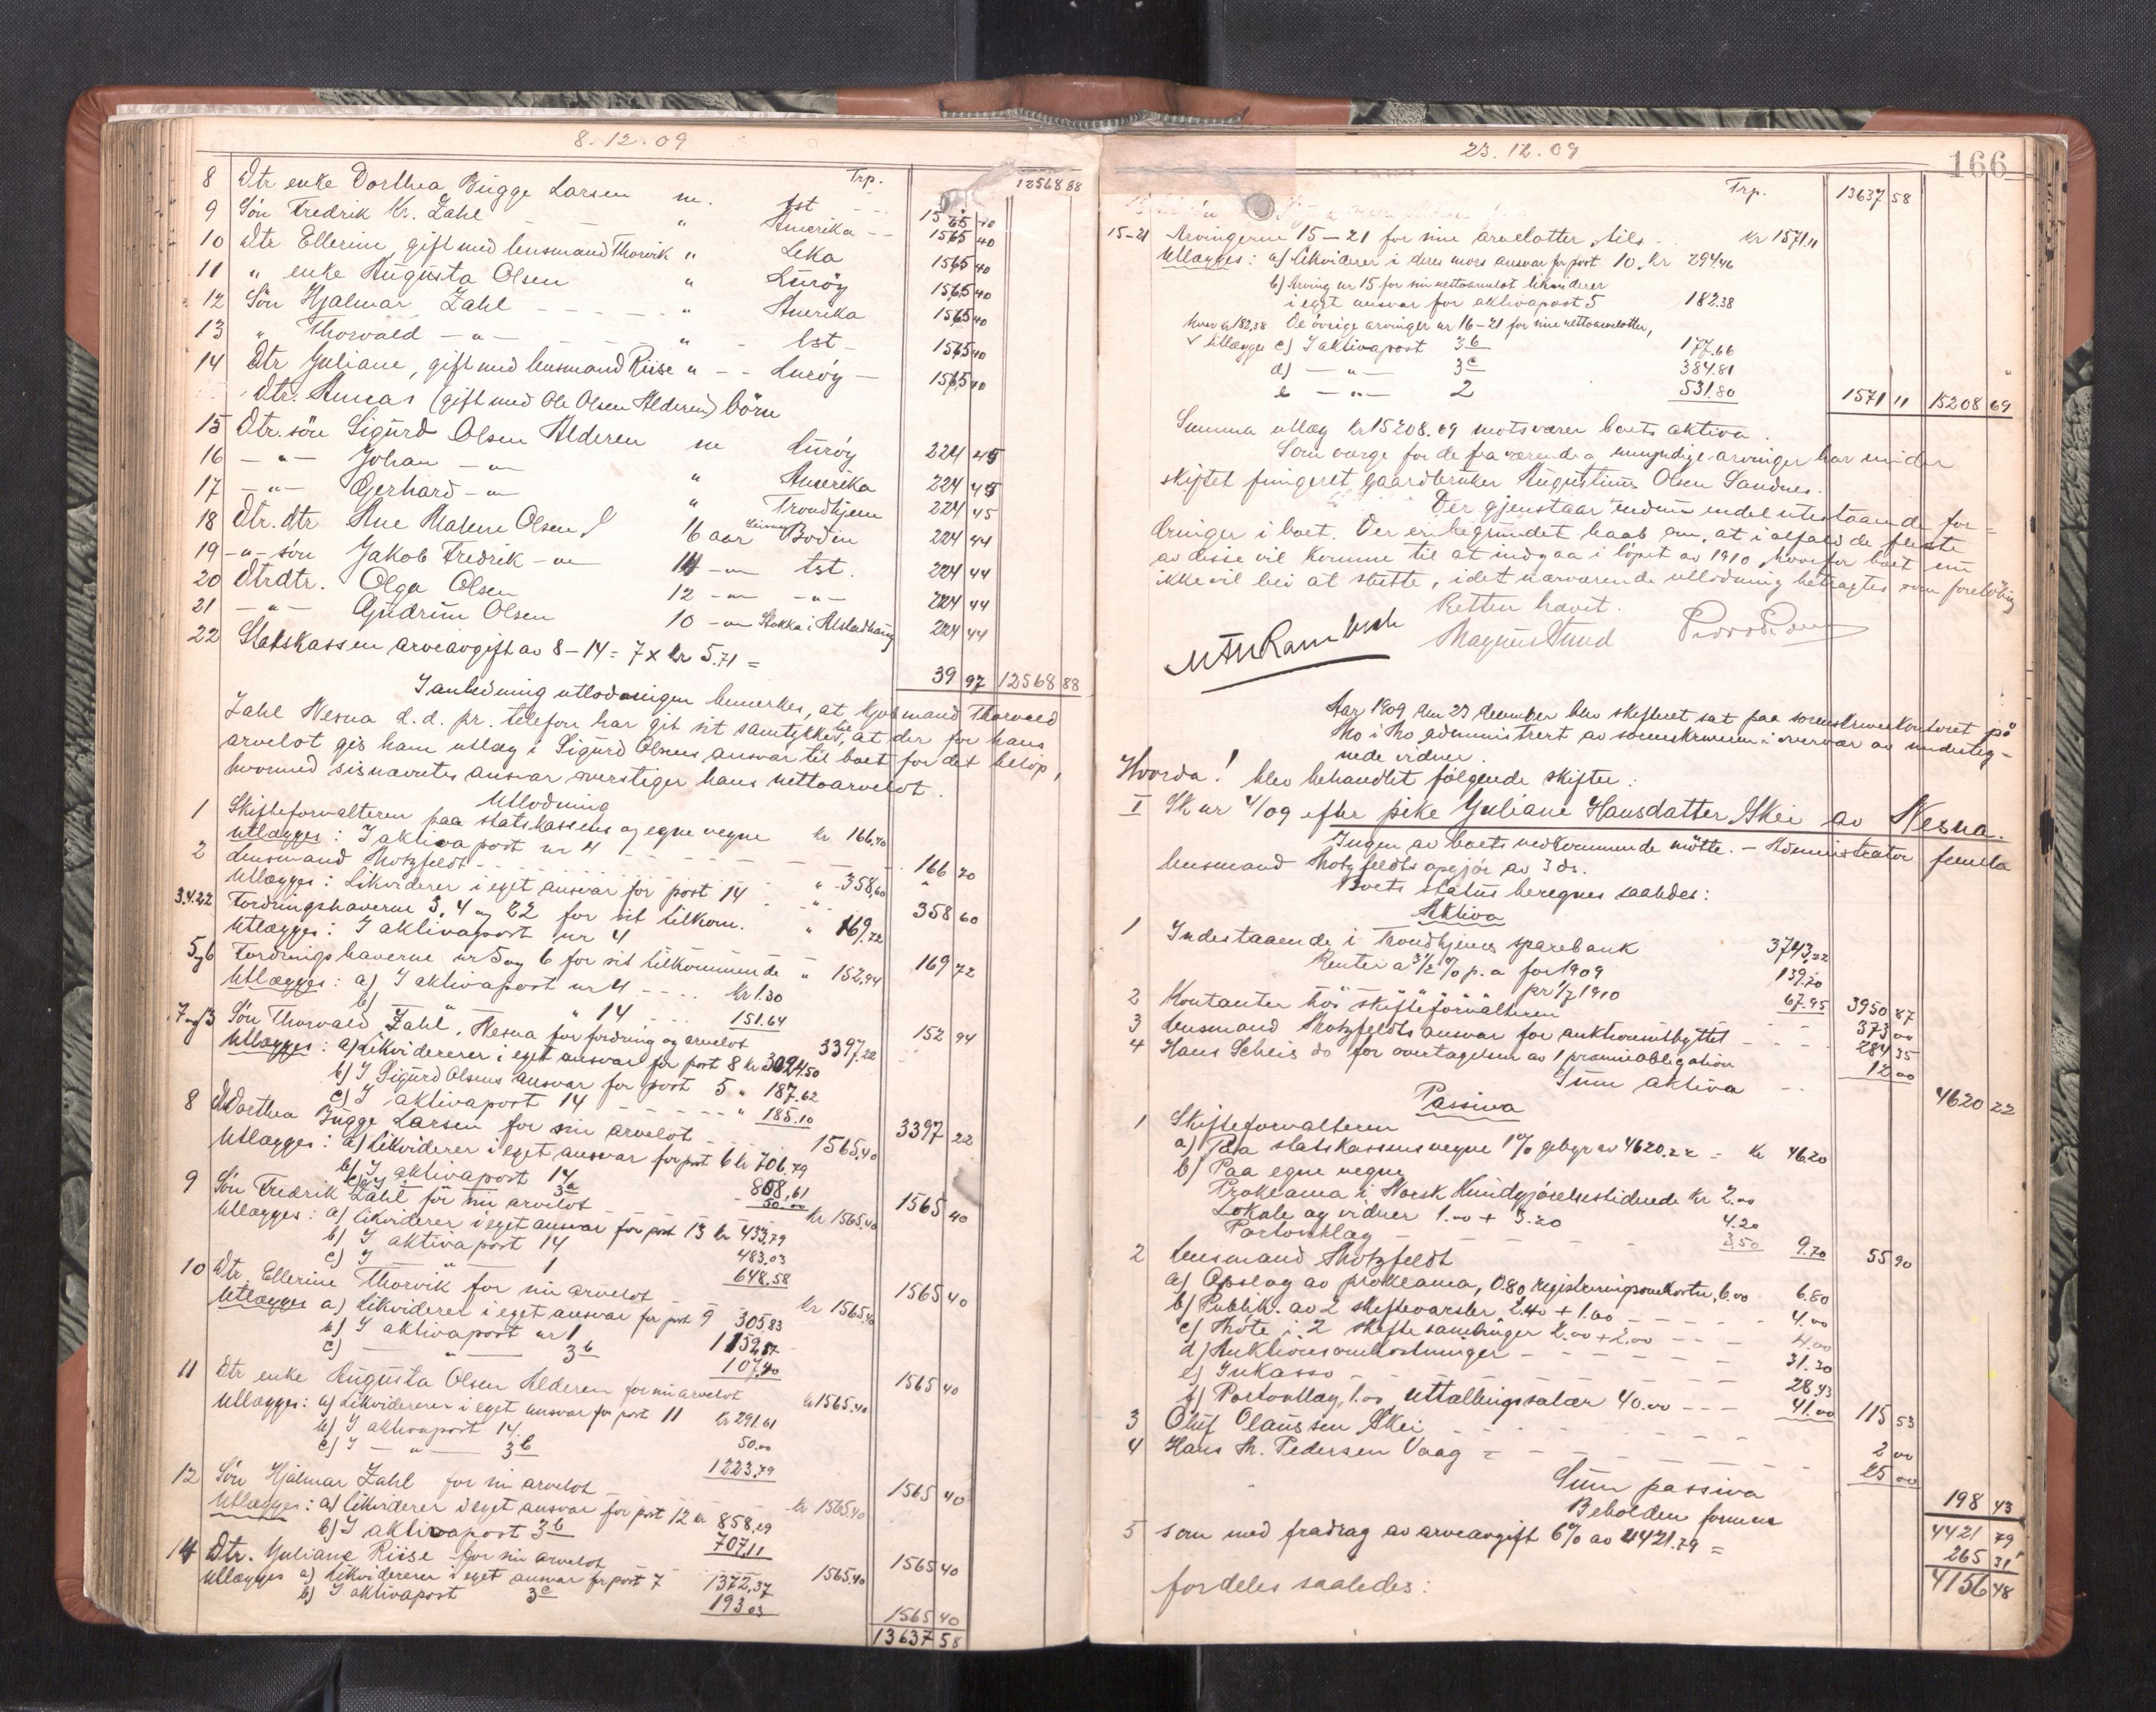 8.12.09
Trp. 12568 88
8 Dtr enke Dorthea Bugge Larsen m. tst 1565 40
9 Søn Fredrik Kr. Zahl " Amerika 1565 40
10 Dtr Ellerine, gift med lensmand Thorvik " Leka 1565 40
11 " enke Augusta Olsen " Lurøy 1565 40
12 Søn Hjalmar Zahl " Amerika 1565 40
13 " Thorvald -"- " tst 1565 40
14 Dtr Juliane, gift med lensmand Riise " Lurøy 1565 40
Dtr. Annas (gift med Ole Olsen Alderen) börn
15 Dtr. sön Sigurd Olsen Alderen m Lurøy 224 45
16 -"- Johan -"- " Amerika 224 45
17 -"- Gerhard -"- " Trondhjem 224 45
18 Dtr. dtr Ane Malene Olsen 16 aar Bodin 224 44
19 -"- sön Jakob Fredrik -"- 14 -"- tst. 224 44
20 Dtrdtr. Olga Olsen 12 -"- -"- 224 44
21 -"- Gudrun Olsen 10 -"- Stokka i Alstadhaug 224 44
22 Statskassen arveavgift av 8-14 = 7 x kr 5.71 = 39 97 12568 88
I anledning utlodningen bemerkes, at kjøbmand Thorvald
Zahl Nesna d.d. pr. telefon har git sit samtykke til, at der for hans
arvelot gis ham utlæg i Sigurd Olsens ansvar til boet for det beløp,
hvormed sisnævntes ansvar overstiger hans nettoarvelot.
Utlodning
1 Skifteforvalteren paa statskassens og egne vegne kr 166,20
Utlægges: I aktivapost nr 4 166 20
2 Lensmand Motzfeldt " 358,60
Utlægges: Likviderer i eget ansvar for post 14 358 60
3.4.22 Fordringshaverne 3, 4 og 22 for sit tilkom. " 169,72
Utlægges: I aktivapost nr 4 169 72
5og6 Fordringshaverne nr 5 og 6 for sit tilkommende " 152,94
Utlægges: a) I aktivapost nr 4 kr 1.30
b) " 14 151.64 152 94
7og13 Søn Thorvald Zahl, Nesna for fordring og arvelot 3397.22
Utlægges: a) Likviderer i eget ansvar for post 8 kr 3024.50
b) I Sigurd Olsens ansvar for post 5 " 187.62
c) I aktivapost 14 " 185.10 3397 22
8 Dorthea Bugge Larsen for sin arvelot 1565.40
Utlægges: a) Likviderer i eget ansvar for post 6 kr 706.79
b) I aktivapost 14 808.61
3a 50.00 1565 40
9 Søn Fredrik Zahl for sin arvelot kr 1565.40
Utlægges: a) Likviderer i eget ansvar for post 13 kr 433,79
b) I aktivapost 14 483.03
c) I " 1 648.58 1565 40
10 Dtr. Ellerine Thorvik for sin arvelot kr 1565.40
Utlægges a) Likviderer i eget ansvar for post 9 305 83
b) I aktivapost nr 1 1152,17
c) " 3b 107,40 1565 40
11 Dtr enke Augusta Olsen Alderen for sin arvelot kr 1565.40
Utlægges: a) Likviderer i eget ansvar for post 11 kr 291.61
b) I aktivapost 14. 50.00
c) I -"- 3b 1223.79 1565 40
12 Søn Hjalmar Zahl for sin arvelot kr 1565.40
Utlægges: a) Likviderer i eget ansvar for post 12 kr 858,29
b) I aktivapost 3b 707.11 1565 40
14 Dtr. Juliane Riise for sin arvelot 1565.40
Utlægges a) Likviderer i eget ansvar for post 7 1372,37
b) I aktivapost 3c 193 03 1565 40
13637 58
23.12.09
166
Trp. 13637 58
15-21 Arvingerne 15-21 for sine arvelotter, tils. kr 1571,11
Utlægges: a) Likviderer i deres mors ansvar for post 10. kr 294,46
b) Arving nr 15 for sin nettoarvelot likviderer
i eget ansvar for aktivapost 5 182.38
De øvrige arvinger nr 16-21 for sine nettoarvelotter,
hver kr 182,38
utlægges c) I aktivapost 3b 177.66
d) -"- 3c 384.81
e -"- 2 531.80 1571 11 15208 69
Summa utlæg kr 15208.69 motsvarer boets aktiva.
Som værge for de fraværende a umyndige arvinger har under
skiftet fungeret gaardbruker Augustinus Olsen Sandnes.
Der gjenstaar endnu endel utestaaende for-
dringer i boet. Der er begrundet haab om, at i alfald de fleste
av disse vil komme til at indgaa i löpet av 1910, hvorfor boet enn
ikke vil bli at slutte, idet nærværende utlodning betragtes som foreløbig
Retten hævet.
Magnus Sund
Aar 1909 den 23 december blev skifteret sat paa sorenskriverkontoret på
Mo i Mo administrert av sorenskriveren i overvær av underteg-
nede vidner.
Hvorda! blev behandlet følgende skifter:
I Sk nr 4/09 efter pike Juliane Hansdatter Skei av Nesna.
Ingen av boets vedkommende mötte. - Administrator femla
lensmand Motzfeldts opgjör av 3 ds.
Boets status beregnes saaledes:
Aktiva
1 Indestaaende i Trondhjems sparebank 3743,22
Renter a 3½ % p.a for 1909 139.70
pr 1/7 1910 67.95 3950 87
2 Kontanter hos skifteforvalteren 373 00
3 Lensmand Motzfeldts ansvar for auktionsutbyttet 284 35
4 Hans Scheis do for overtagelsen av 1 præmieobligation 12 00
Sum aktiva 4620 22
Passiva
1 Skifteforvalteren
a) Paa statskassens vegne 1% gebyr av 4620.22 = kr 46.20
b) Paa egne vegne
Proklama i Norsk Kundgjørelsestidende kr 2.00
Lokale og vidner 1.00 + 3.20 4.20
Portoutlæg 3.50 9.70 55 90
2 Lensmand Motzfeldt
a) Opslag av proklama, 0.80, registreringsomkostn, 6.00 6.80
b) Publik. av 2 skiftevarsler 2.40 + 1.60 4.00
c) Møte i 2 skiftesamlinger 2.00 + 2.00 4.00
d) Auktionsomkostninger 31.30
e) Inkasso 28.43
f) Portoutlæg, 1.00 Uttællingssalær 40.00 41.00 115 53
3 Oluf Olaussen Skei 2 00
4 Hans M. Pedersen Vaag 25 00
Sum passiva 198 43
Beholden formue 4421 79
5 som med fradrag av arveavgift 6% av 4421.79 = 265 31
4156 48
fordeles saaledes: